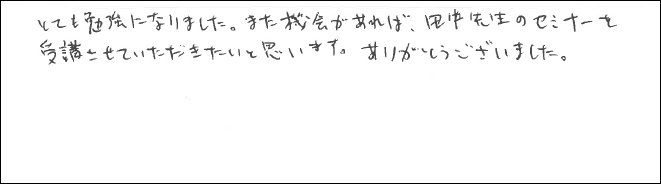 とても勉強になりました。また機会があれば、田中先生のセミナーを
受講させていただきたいと思います。ありがとうございました。